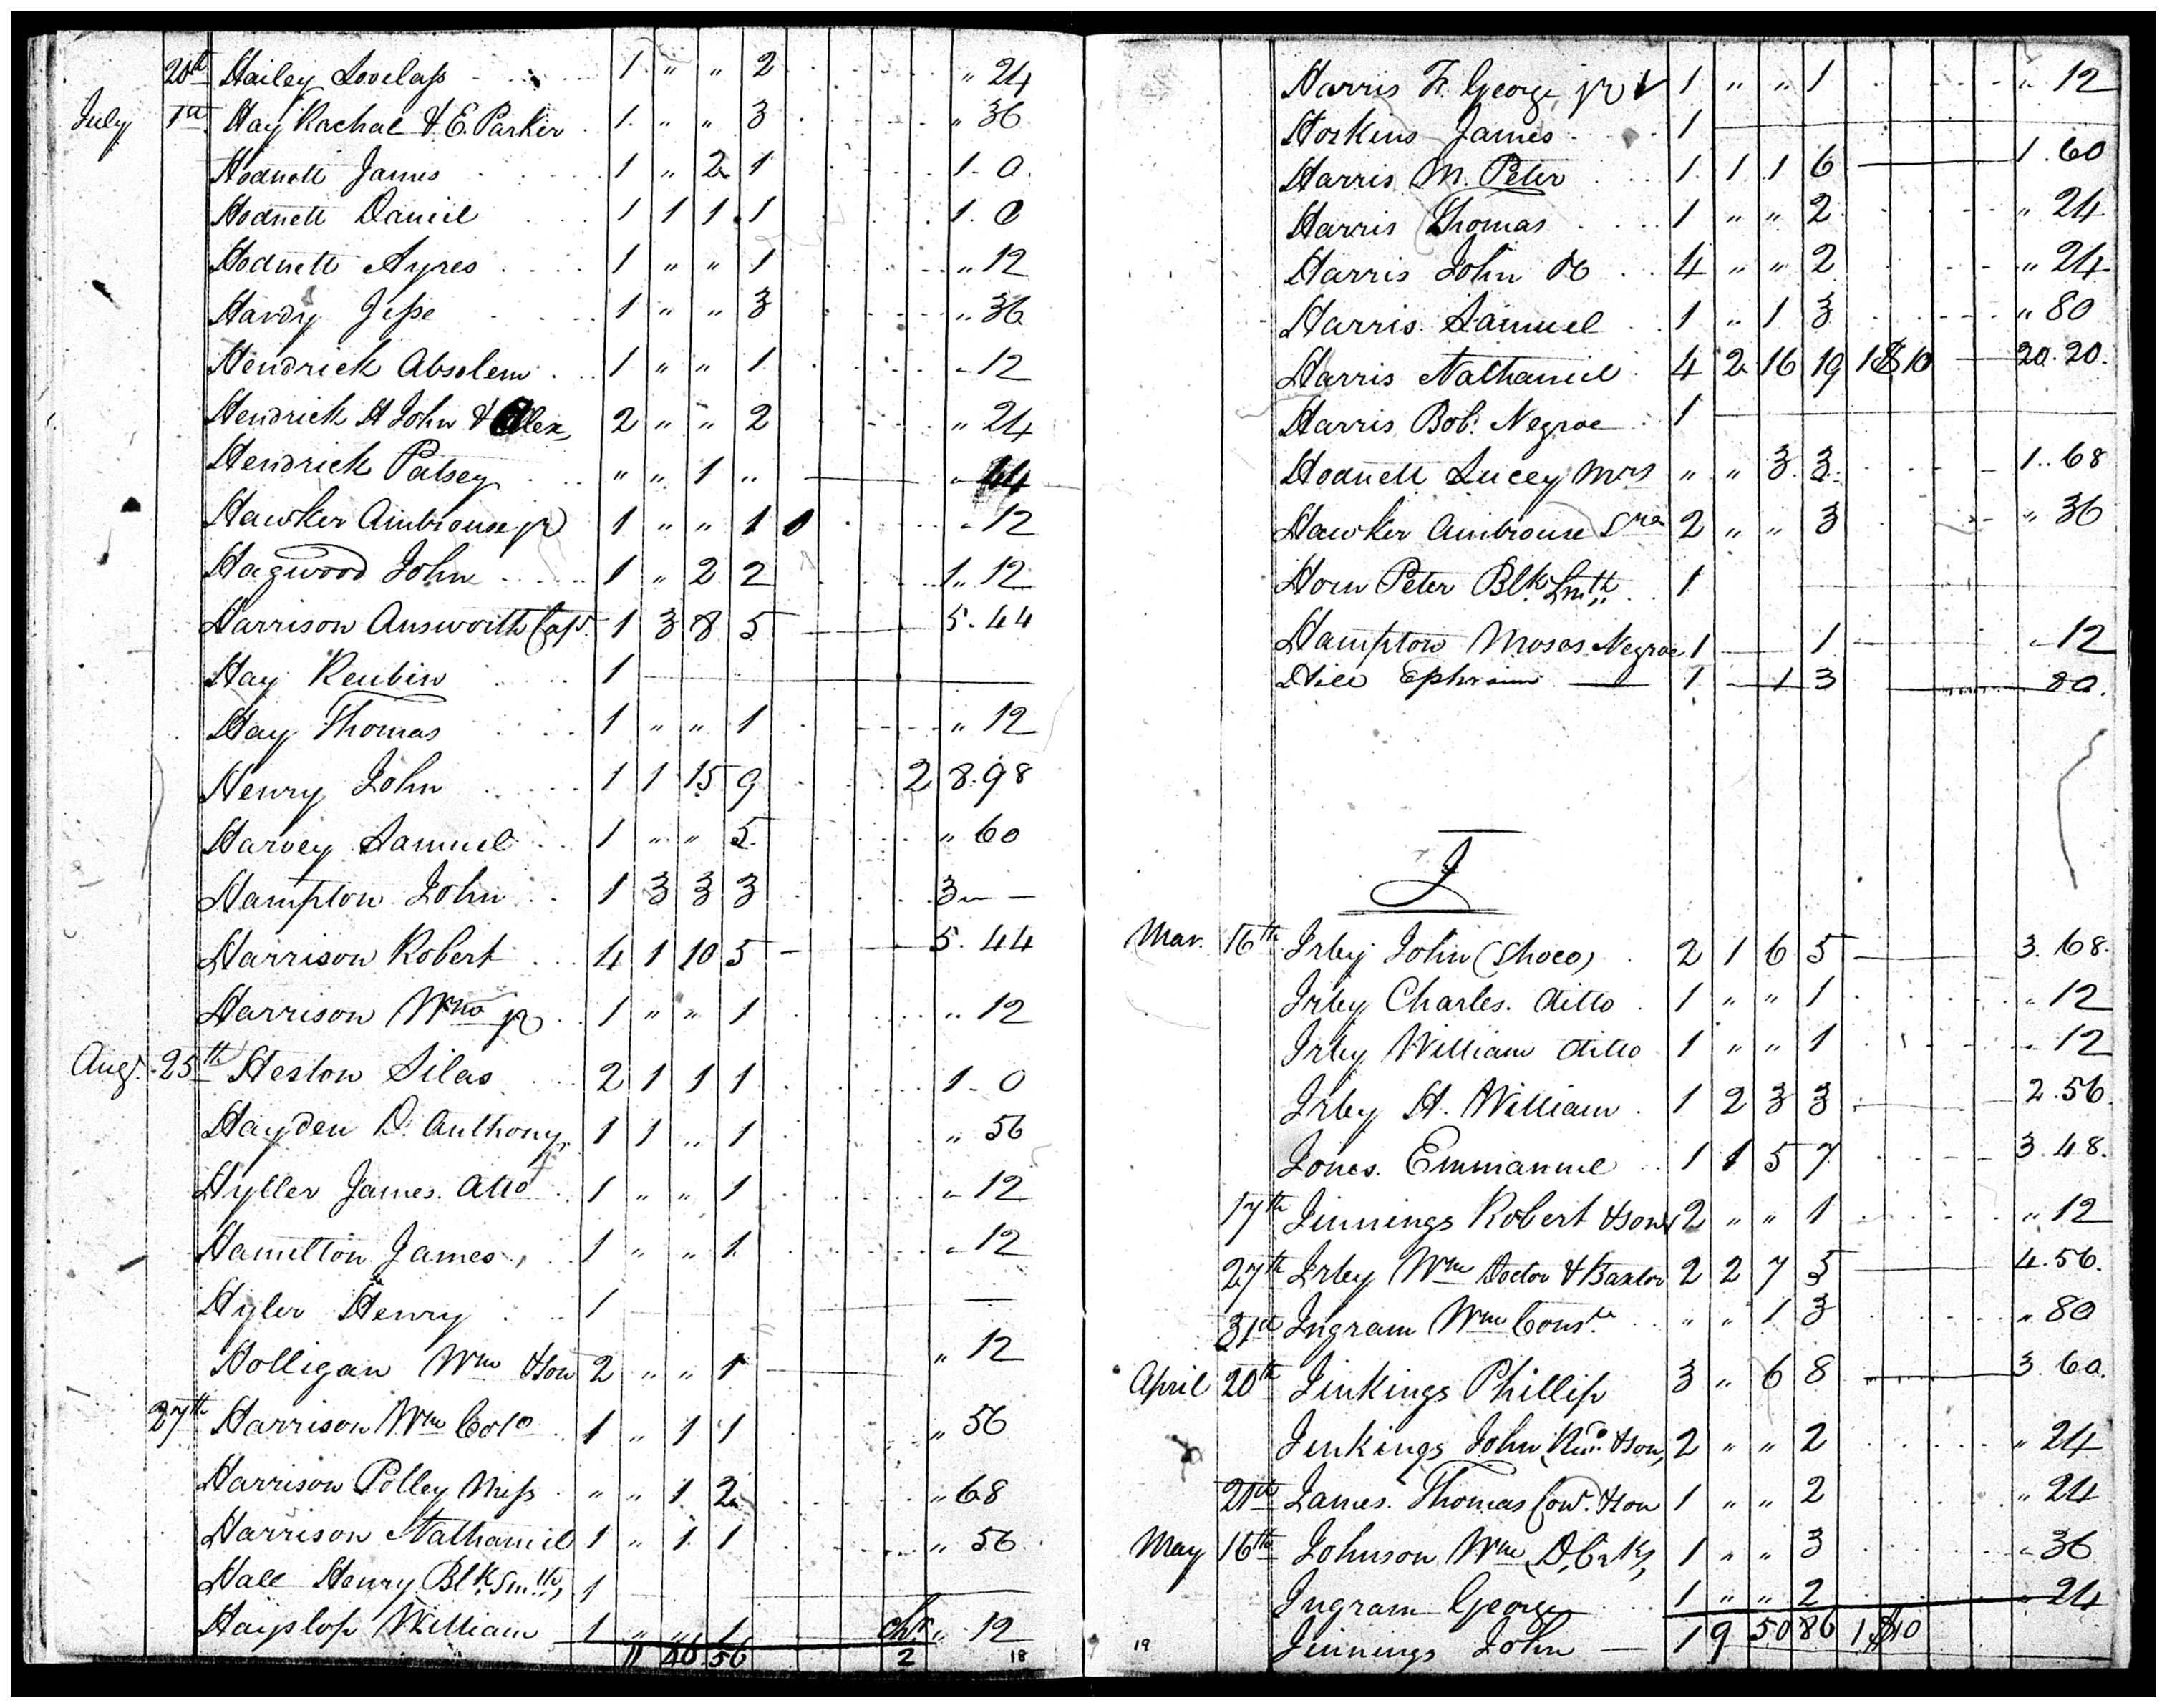 20th Hailey Lovelass 1 " " 2 " 24
July 1st Hay Rachal & E. Parker 1 " " 3 " 36
Hodnett James 1 " 2 1 1. 0
Hodnett Daniel 1 1 1 1 1. 0
Hodnett Ayres 1 " " 1 " 12
Hardy Jesse 1 " " 3 " 36
Hendrick Absolem 1 " " 1 " 12
Hendrick H John & Alex 2 " " 2 " 24
Hendrick Patsey " " 1 " " 44
Hawker Ambrouse jr 1 " " 1 0 " 12
Hagwood John 1 " 2 2 1 " 12
Harrison Answorth Cap. 1 3 8 5 5. 44
Hay Reubin 1
Hay Thomas 1 " " 1 " 12
Henry John 1 1 15 9 2 8. 98
Harvey Samuel 1 " " 5 " 60
Hampton John 1 3 3 3 3 " —
Harrison Robert 4 1 10 5 5. 44
Harrison Wm jr 1 " " 1 " 12
Aug. 25th Heston Silas 2 1 1 1 1. 0
Hayden D. Anthony 1 1 " 1 " 56
Hyller James 1 " " 1 " 12
Hamilton James 1 " " 1 " 12
Hyler Henry 1 —
Holligan Wm & son 2 " " 1 " 12
27th Harrison Wm Colo 1 " 1 1 " 56
Harrison Polley Miss " " 1 2 " 68
Harrison Nathaniel 1 " 1 1 " 56
Hall Henry Blk Smth, 1
Hayslop William 1 " " 1 chr. " 12
11 46 56 2 18
Harris F. George jr 1 " " 1 " 12
Hoskins James 1
Harris M. Peter 1 1 1 6 1. 60
Harris Thomas 1 " " 2 " 24
Harris John 4 " " 2 " 24
Harris Samuel 1 " 1 3 " 80
Harris Nathaniel 4 2 16 19 1 $ 10 20. 20.
Harris Bob. Negroe 1
Hodnett Lucey Mrs " " 3 3 1. 68
Hawker Ambrouse Snr 2 " " 3 " 36
Horn Peter Blk Smth 1
Hampton Moses Negroe 1 1 " 12
Hill Ephraim 1 — 1 3 80.
I
Mar. 16th Irby John (Shoco) 2 1 6 5 3. 68.
Irby Charles. ditto 1 " " 1 " 12
Irby William ditto 1 " " 1 " 12
Irby H. William 1 2 3 3 2. 56
Jones Emmanuel 1 1 5 7 3. 48.
17th Jinnings Robert & son 2 " " 1 " 12
27th Irby Wm Doctor & Baxter 2 2 7 5 4. 56.
31st Ingram Wm Const. " " 1 3 " 80
April 20th Jinkings Phillip 3 " 6 8 3. 60.
Jinkings John & son, 2 " " 2 " 24
21st James Thomas & son 1 " " 2 " 24
May 16th Johnson Wm 1 " " 3 " 36
Ingram George 1 " " 2 " 24
19 Jinnings John — 1 9 50 86 1 $ 10